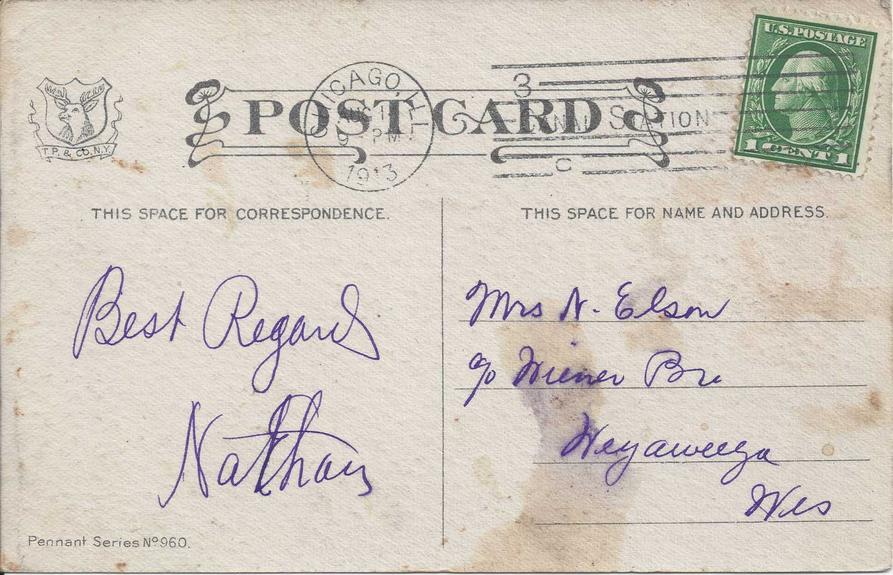 U.S. POSTAGE
1 CENT 1
CHICAGO, ILL
9 PM
1913
3
C
POST CARD
T.P. & CO. N.Y.
THIS SPACE FOR CORRESPONDENCE.
THIS SPACE FOR NAME AND ADDRESS.
Best Regards
Nathan
Mrs N. Elson
c/o Wiener Bro
Weyauwega
Wis
Pennant Series Nº 960.